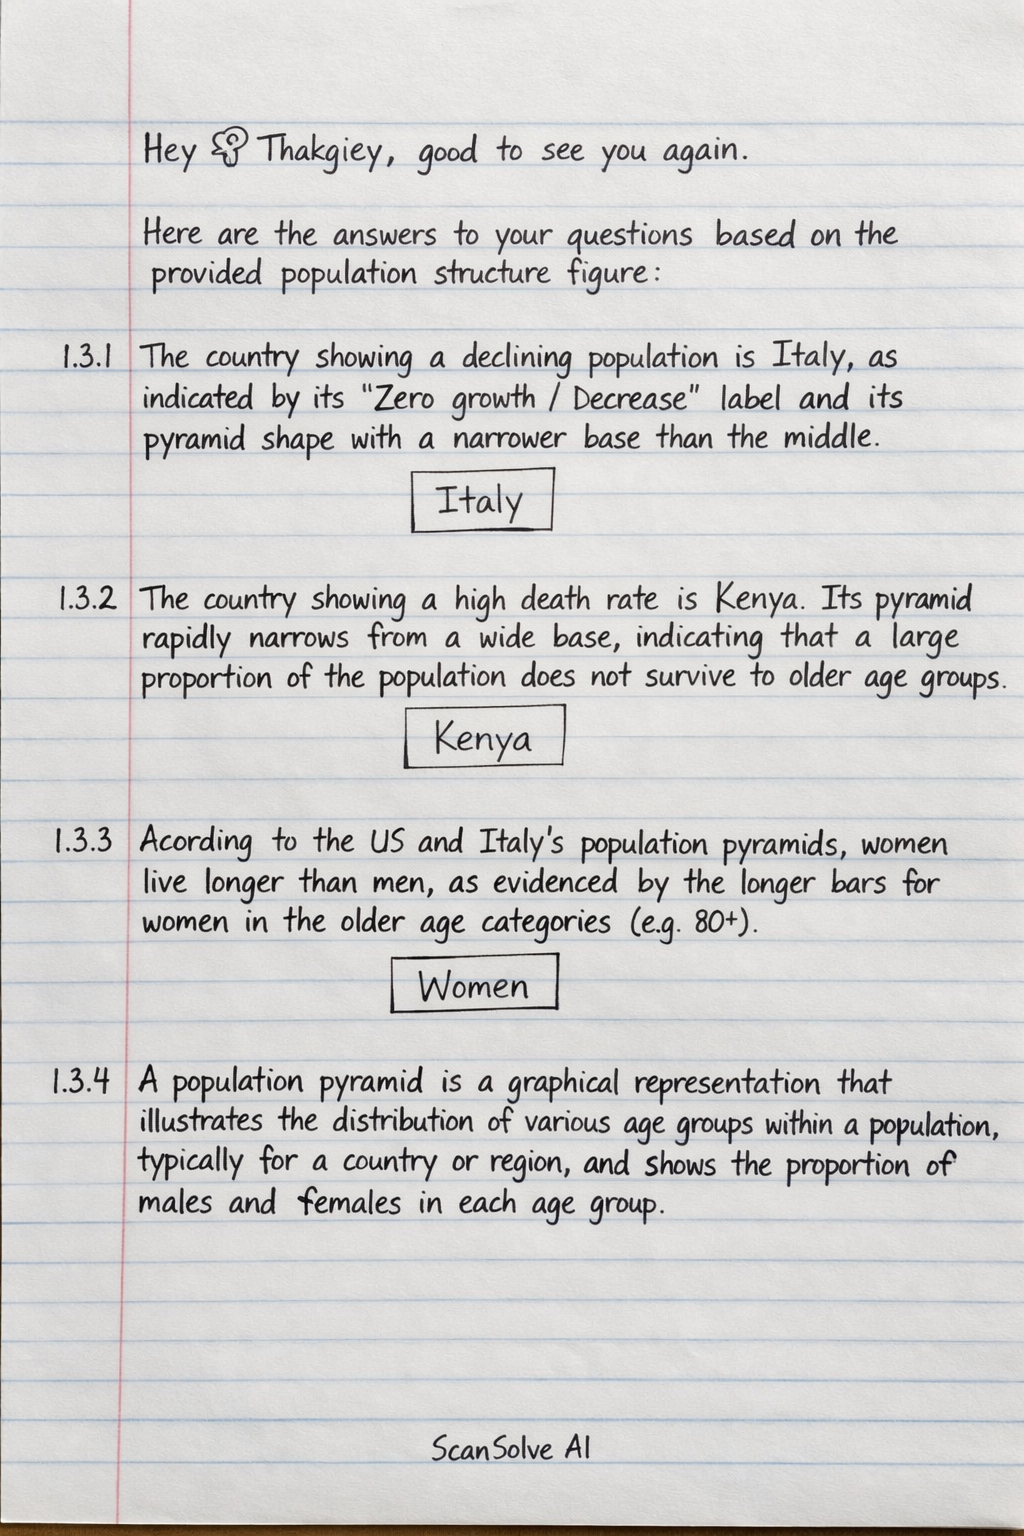 Hey Thakgiey, good to see you again.
Here are the answers to your questions based on the
provided population structure figure:
1.3.1 The country showing a declining population is Italy, as
indicated by its "Zero growth / Decrease" label and its
pyramid shape with a narrower base than the middle.
Italy
1.3.2 The country showing a high death rate is Kenya. Its pyramid
rapidly narrows from a wide base, indicating that a large
proportion of the population does not survive to older age groups.
Kenya
1.3.3 Acording to the US and Italy's population pyramids, women
live longer than men, as evidenced by the longer bars for
women in the older age categories (e.g. 80+).
Women
1.3.4 A population pyramid is a graphical representation that
illustrates the distribution of various age groups within a population,
typically for a country or region, and shows the proportion of
males and females in each age group.
ScanSolve AI